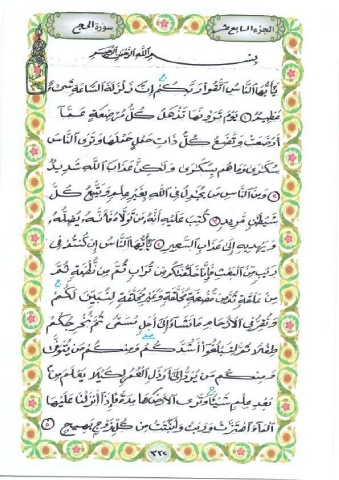 الجزء السابع عشر
سورة الحج
بسم الله الرحمن الرحيم
يَا أَيُّهَا النَّاسُ اتَّقُوا رَبَّكُمْ إِنَّ زَلْزَلَةَ السَّاعَةِ شَيْءٌ
عَظِيمٌ ۝١ يَوْمَ تَرَوْنَهَا تَذْهَلُ كُلُّ مُرْضِعَةٍ عَمَّا
أَرْضَعَتْ وَتَضَعُ كُلُّ ذَاتِ حَمْلٍ حَمْلَهَا وَتَرَى النَّاسَ
سُكَارَى وَمَا هُم بِسُكَارَى وَلَكِنَّ عَذَابَ اللَّهِ شَدِيدٌ
۝٢ وَمِنَ النَّاسِ مَن يُجَادِلُ فِي اللَّهِ بِغَيْرِ عِلْمٍ وَيَتَّبِعُ كُلَّ
شَيْطَانٍ مَّرِيدٍ ۝٣ كُتِبَ عَلَيْهِ أَنَّهُ مَن تَوَلَّاهُ فَأَنَّهُ يُضِلُّهُ
وَيَهْدِيهِ إِلَى عَذَابِ السَّعِيرِ ۝٤ يَا أَيُّهَا النَّاسُ إِن كُنتُمْ فِي
رَيْبٍ مِّنَ الْبَعْثِ فَإِنَّا خَلَقْنَاكُم مِّن تُرَابٍ ثُمَّ مِن نُّطْفَةٍ ثُمَّ
مِنْ عَلَقَةٍ ثُمَّ مِن مُّضْغَةٍ مُّخَلَّقَةٍ وَغَيْرِ مُخَلَّقَةٍ لِّنُبَيِّنَ لَكُمْ
وَنُقِرُّ فِي الْأَرْحَامِ مَا نَشَاءُ إِلَى أَجَلٍ مُّسَمًّى ثُمَّ نُخْرِجُكُمْ
طِفْلًا ثُمَّ لِتَبْلُغُوا أَشُدَّكُمْ وَمِنكُم مَّن يُتَوَفَّى
وَمِنكُم مَّن يُرَدُّ إِلَى أَرْذَلِ الْعُمُرِ لِكَيْلَا يَعْلَمَ مِن
بَعْدِ عِلْمٍ شَيْئًا وَتَرَى الْأَرْضَ هَامِدَةً فَإِذَا أَنزَلْنَا عَلَيْهَا
الْمَاءَ اهْتَزَّتْ وَرَبَتْ وَأَنبَتَتْ مِن كُلِّ زَوْجٍ بَهِيجٍ ۝٥